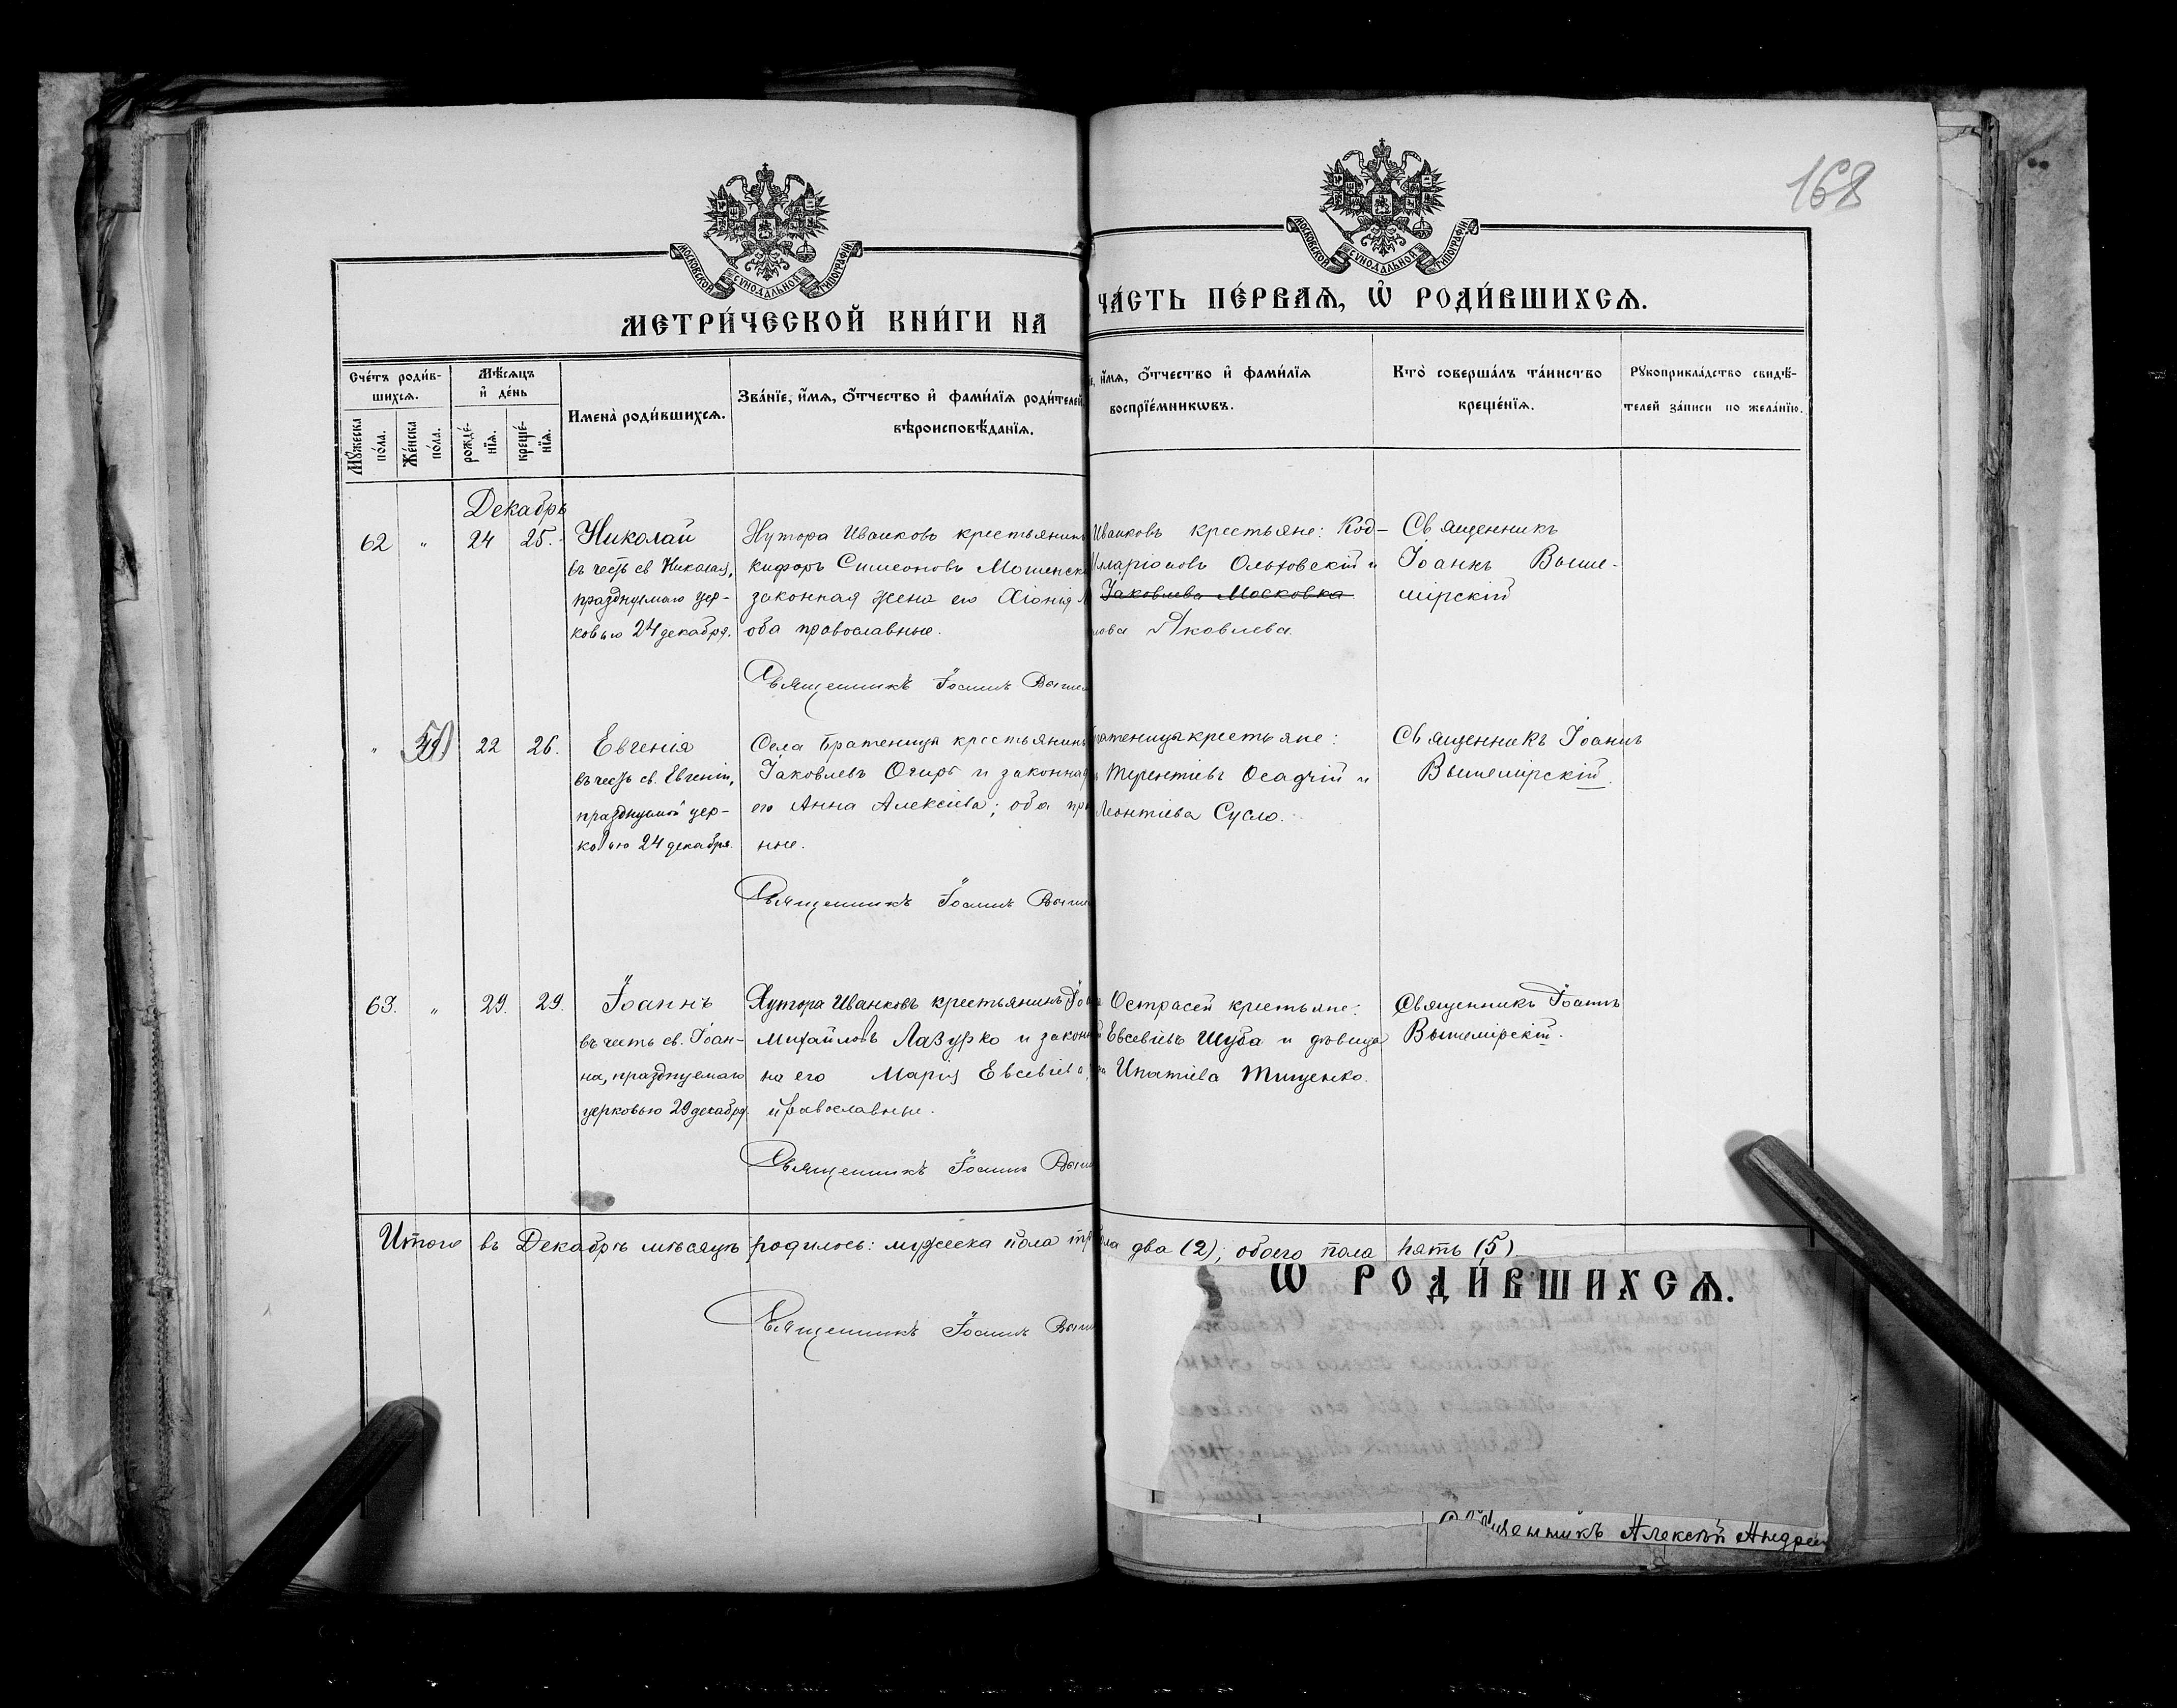 168
МОСКОВСКОЙ СѴНОДАЛЬНОЙ ТИПОГРАФІИ
МОСКОВСКОЙ СѴНОДАЛЬНОЙ ТИПОГРАФІИ
МЕТРИ́ЧЕСКОЙ КНИ́ГИ НА
ЧА́СТЬ ПЕ́РВАѦ, Ѡ҆ РОДИ́ВШИХСѦ.
Сче́тъ роди́в-
шихсѧ.
Мꙋ́жеска
по́ла.
Же́нска
по́ла.
Мѣ́сѧцъ
и҆ де́нь
рожде́-
нїѧ.
креще́-
нїѧ.
Имена̀ роди́вшихсѧ.
Зва́нїе, и҆́мѧ, ѻ҆́тчество и҆ фами́лїѧ роди́телей,
вѣроисповѣ́данїѧ.
и҆́мѧ, ѻ҆́тчество и҆ фами́лїѧ
воспрїе́мникѡвъ.
Кто̀ соверша́лъ та́инство
креще́нїѧ.
Рꙋкоприкла́дство свидѣ́-
телей за́писи по жела́нїю.
Декабрь
62 " 24 25.
Николай
въ честь св Николая,
празднуемаго цер-
ковью 24 декабря.
Хутора Иванковъ крестьянинъ
кифоръ Симеоновъ Мошенск
законная жена его Хіонія
оба православные.
Священникъ Іоаннъ Выше
Иванковъ крестьяне: Код-
Илларіоновъ Ольховскій и
Іаковлева Московка
Яковлева.
Священникъ
Іоаннъ Выше-
мірскій
" 50 22 26.
Евгенія
въ честь св. Евгеніи,
празднуемой цер-
ковью 24 декабря.
Села Братеница крестьянинъ
Іаковлевъ Огирь и законная
его Анна Алексіева; оба пра
ные.
Священникъ Іоаннъ Выше
ратеница крестьяне:
Терентіевъ Осадчій и
Леонтіева Сусло.
Священникъ Іоаннъ
Вышемірскій.
63. " 29. 29.
Іоаннъ
въ честь св. Іоан-
на, празднуемаго
церковью 29 декабря.
Хутора Иванковъ крестьянинъ
Михайловъ Лазурко и законн
на его Марія Евсевіева,
православные.
Священникъ Іоаннъ Выше
Острасей крестьяне:
Евсевіевъ Шуба и дѣвица
Ипатіева Тищенко.
Священникъ Іоаннъ
Вышемірскій.
Итого въ Декабрѣ мѣсяцѣ родилось: мужеска пола тр
два (2); обоего пола пять (5)
Священникъ Іоаннъ Выше
Ѡ РОДИ́ВШИХСѦ.
Священникъ Алексѣй Андрее